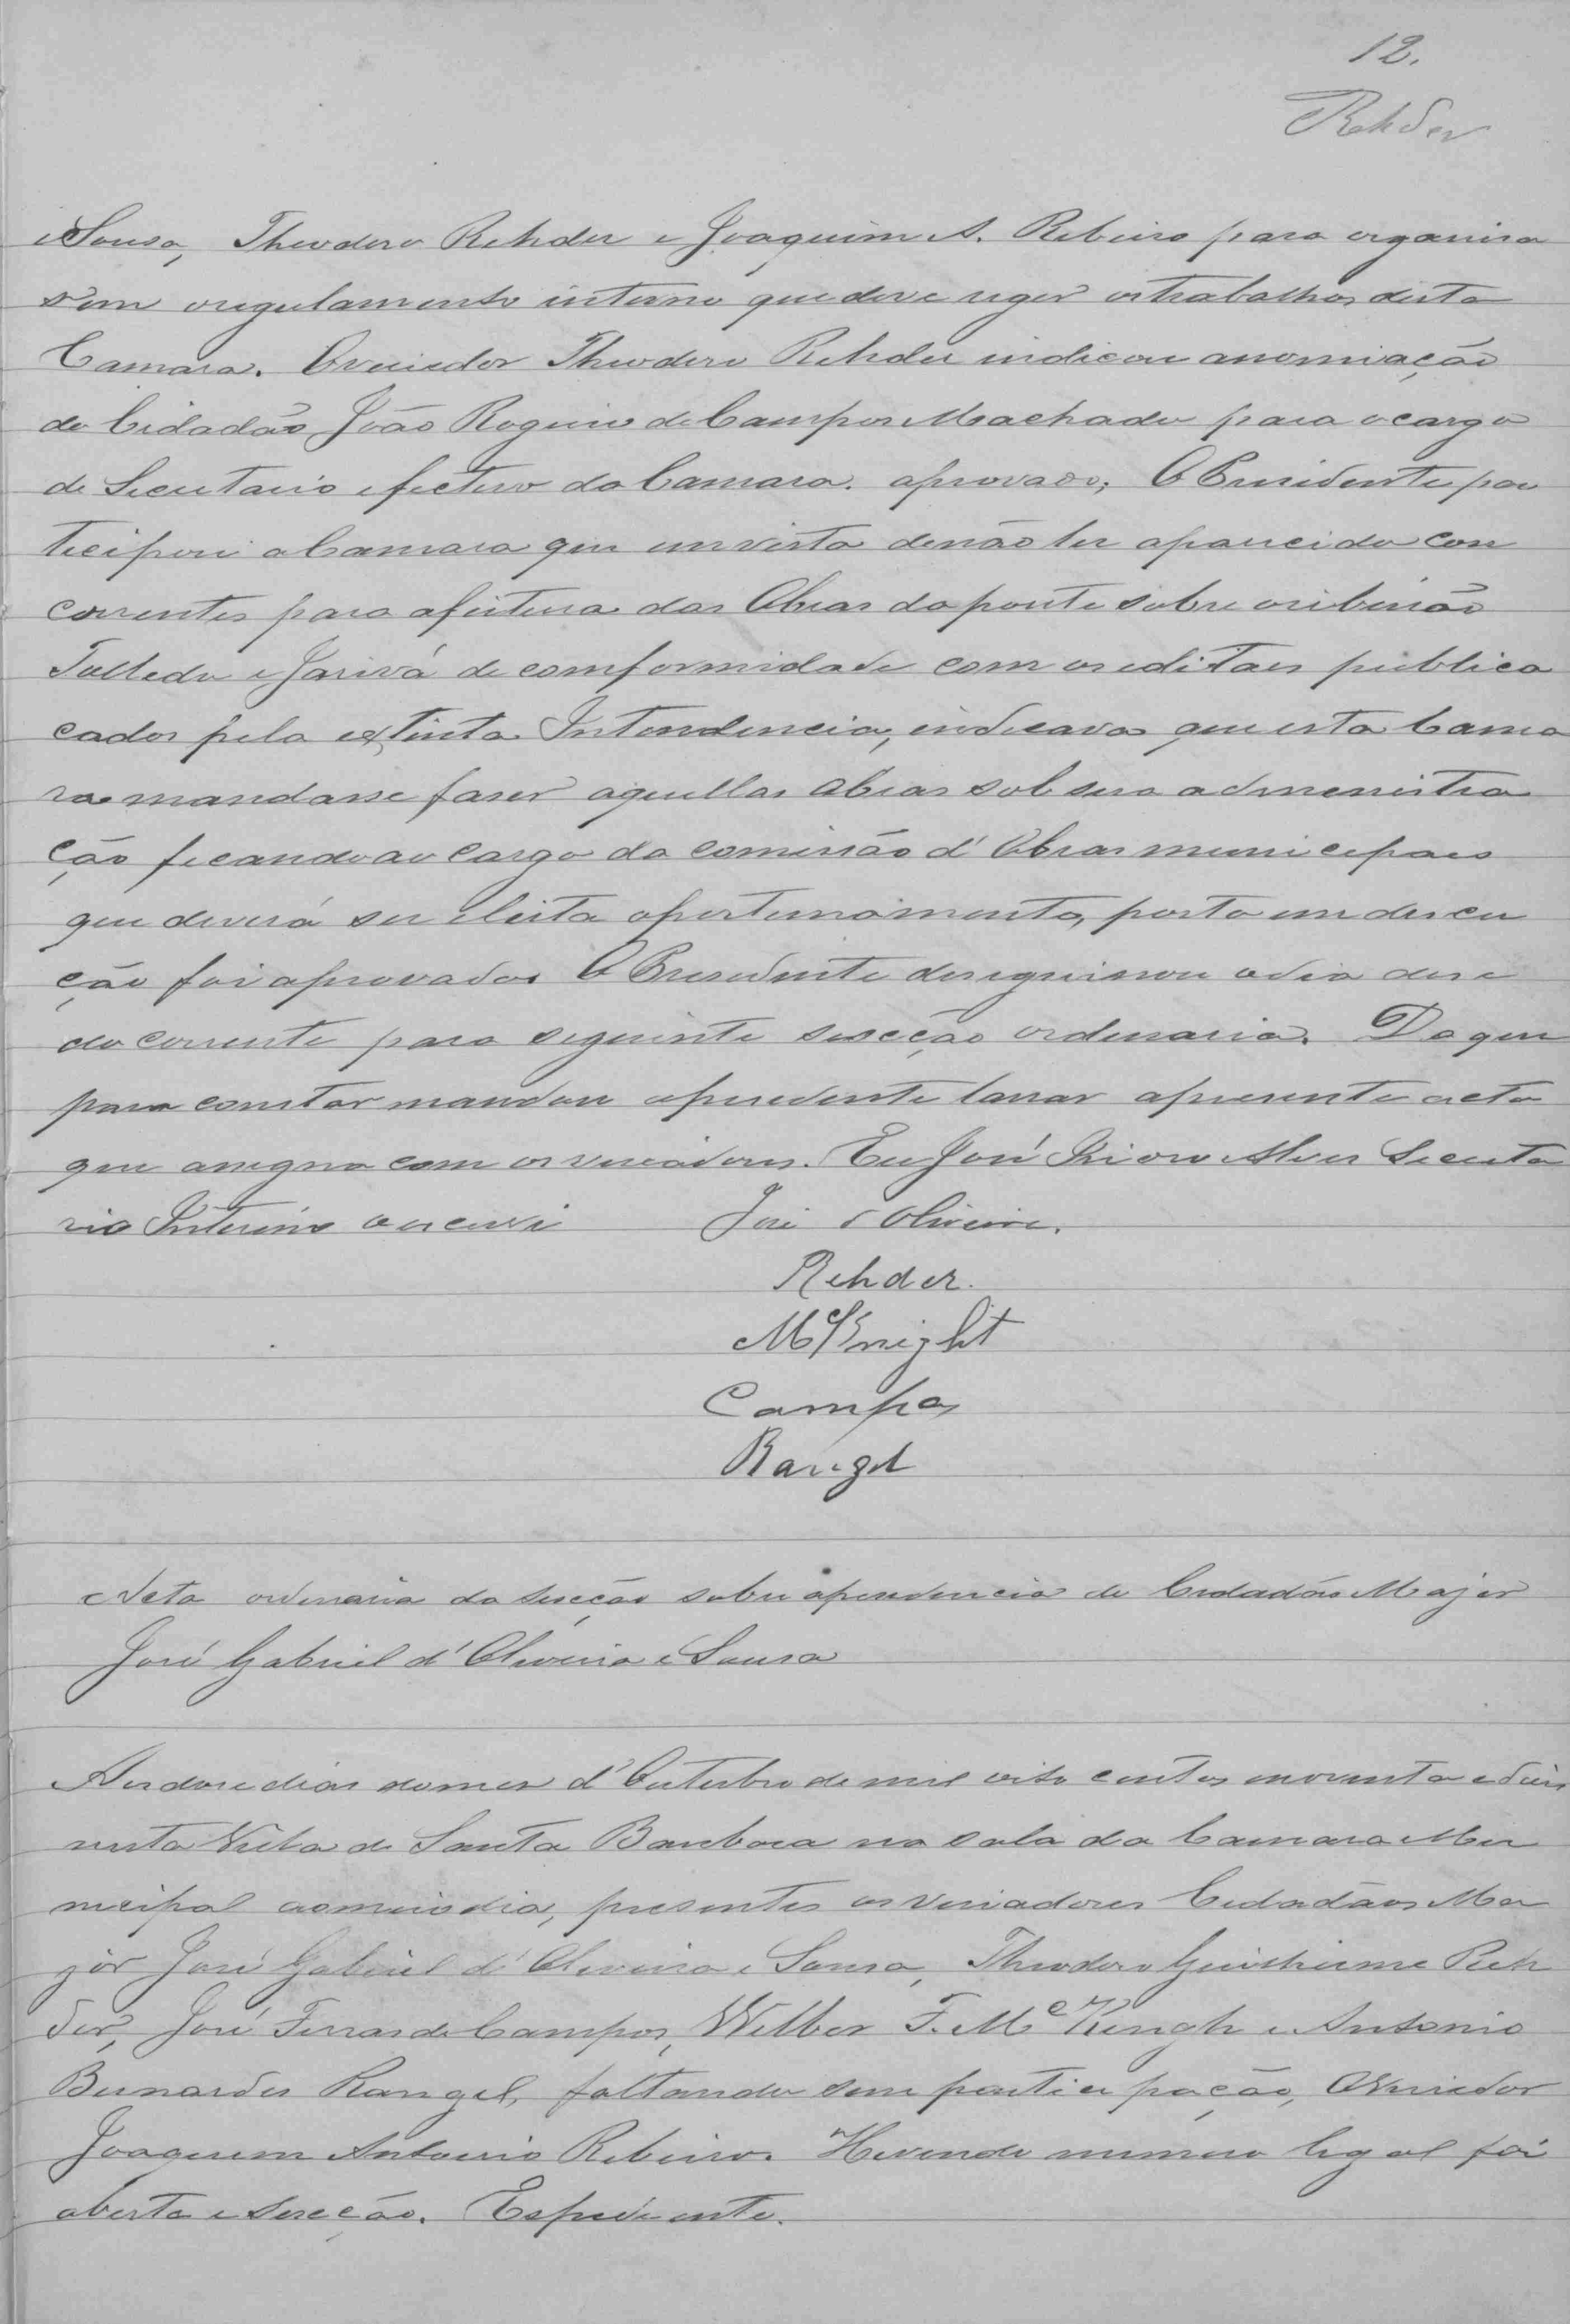 12.
Rehder
e Sousa, Theodoro Rehder e Joaquim A. Ribeiro para organisa
rem o regulamento interno que deve reger os trabalhos desta
Camara. O veriador Theodoro Rehder indicou a nomiação
do Cidadão João Rogerio de Campos Machado para o cargo
de Secretario efectivo da Camara. aprovado; O Presidente par
tecipou a Camara que em vista de não ter aparecido con
correntes para a feitura das Obras da ponte sobre o ribeirão
Tolledo e Jarivá de comformidade com os editaes publica
cados pela extinta Intendencia, indicava que esta Cama
ra mandasse faser aquellas obras sob sua admenistra
ção ficando ao cargo da comissão d' Obras municipaes
que deverá ser eleita opertunamente, posto em discu
ção foi aprovado. O Presedente desiguinou o dia dose
do corrente para seguinte secção ordenaria. Do que
para constar mandou o presedente lavrar a presente acta
que assigna com os veriadores. Eu José Alves Secreta
rio Interino o escrevi José d Oliveira.
Rehder.
McKnight
Campos
Rangel
Acta ordenaria da secção sobre a presedencia do Cidadão Major
José Gabriel d' Oliveira e Sousa
Aos dose dias do mes d' Outubro de mil oito centos noventa e dois
nesta Villa de Santa Barbara na sala da Camara Mu
nicipal ao meio dia, presentes os veriadores Cidadãos Ma
jor José Gabriel d' Oliveira e Sousa, Theodoro Guilherme Reh
der, José Ferras de Campos, Wilber F. Mc Kingh e Antonio
Bernardes Rangel, faltando sem partici pação, O Veriador
Joaquim Antonio Ribeiro. Havendo numero legal foi
aberta e secção. Expediente.